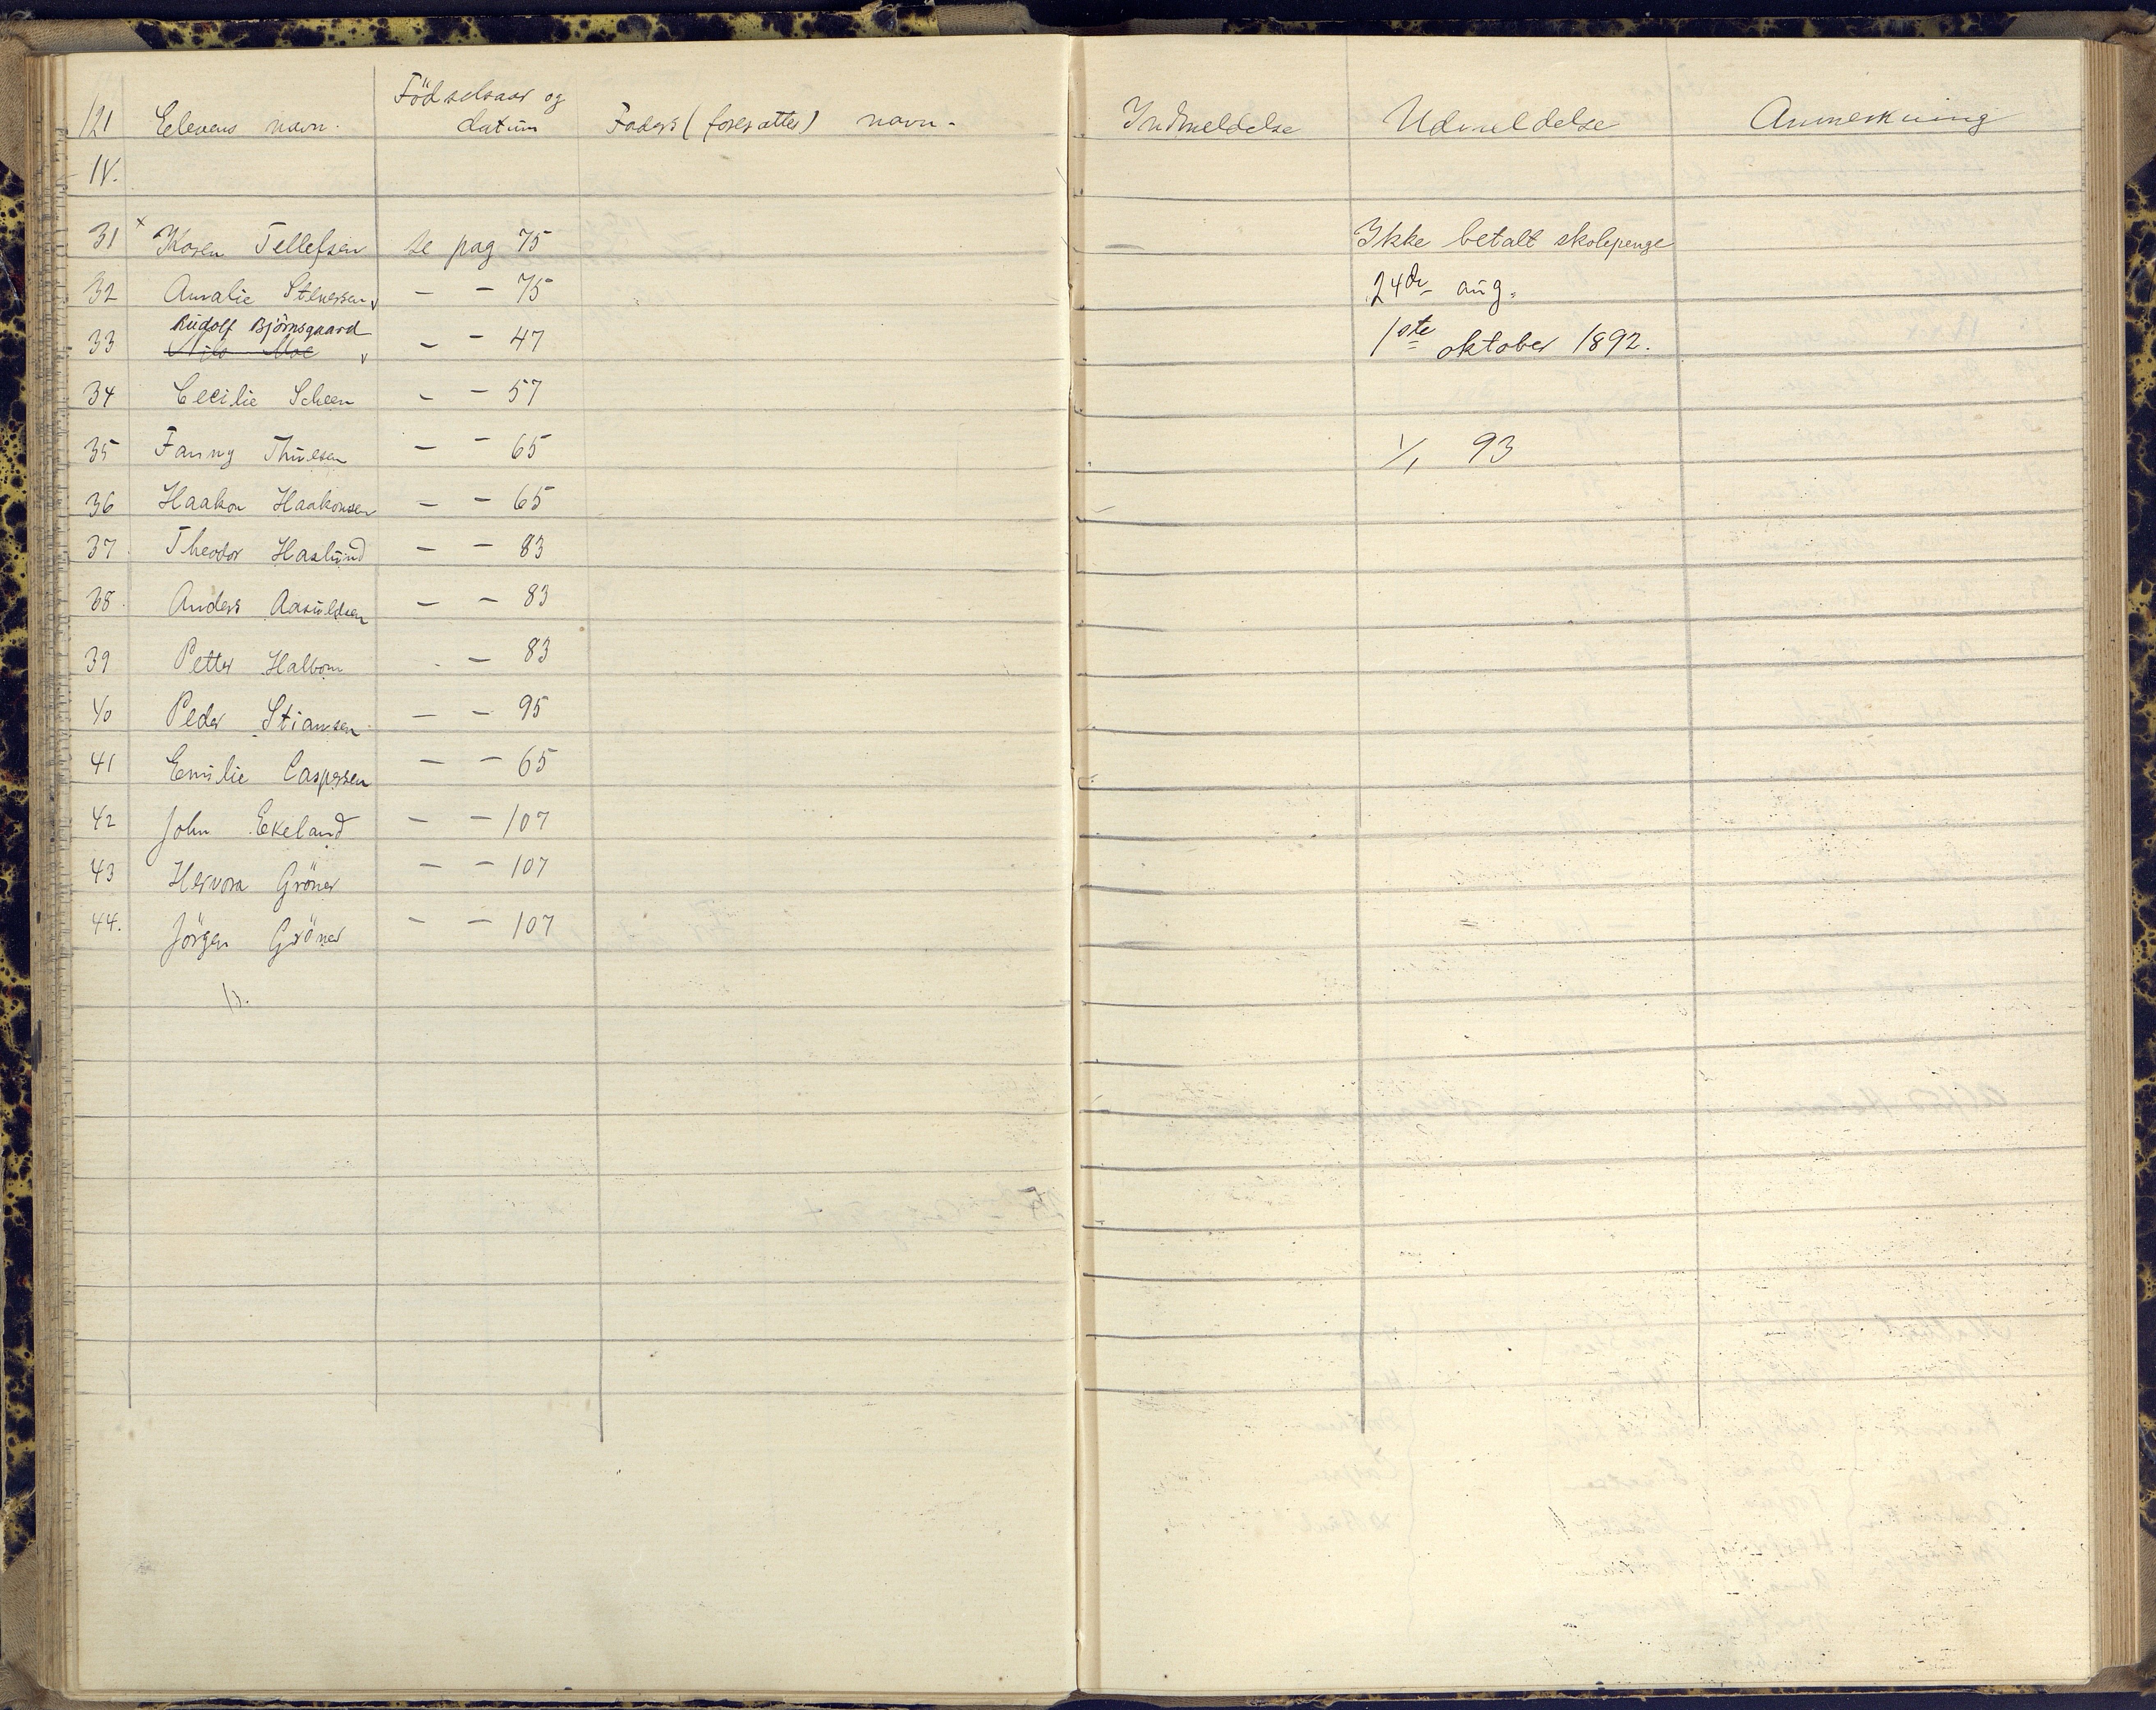 121 Elevens navn. Födselsaar og datum Faders (foresattes) navn. Indmeldelse Udmeldelse Anmerkning
IV.
31 x Karen Tellefsen se pag 75 Ikke betalt skolepenge
32 Amalie Stenersen v — — 75 24de aug.
Rudolf Björnsgaard
33 Nils Moe v — — 47 1ste oktober 1892.
34 Cecilie Scheen — — 57
35 Fanny Thulesen — — 65 1/1 93
36 Haakon Haakonsen — — 65
37 Theodor Haslund — — 83
38 Anders Aasuldsen — — 83
39 Petter Halvorn — 83
40 Peder Stiansen — — 95
41 Emilie Caspersen — — 65
42 John Ekeland — — 107
43 Hervora Gröner — — 107
44. Jörgen Gröner — — 107
13.